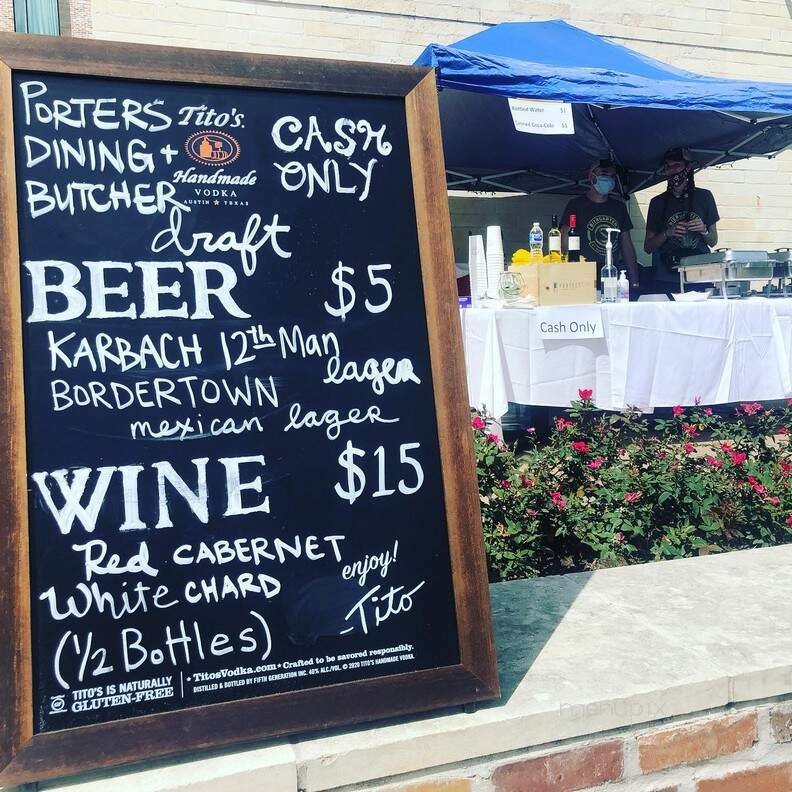 PORTERS
DINING +
BUTCHER
Tito's
Handmade
VODKA
AUSTIN ★ TEXAS
CASH
ONLY
draft
BEER $5
KARBACH 12th Man
lager
BORDERTOWN
mexican lager
WINE $15
Red CABERNET
White CHARD
(1/2 Bottles)
enjoy!
-Tito
TITO'S IS NATURALLY
GLUTEN-FREE
• TitosVodka.com • Crafted to be savored responsibly.
DISTILLED & BOTTLED BY FIFTH GENERATION INC. 40% ALC./VOL. © 2020 TITO'S HANDMADE VODKA.
Bottled Water $1
Canned Coca-Cola
Cash Only
menupix